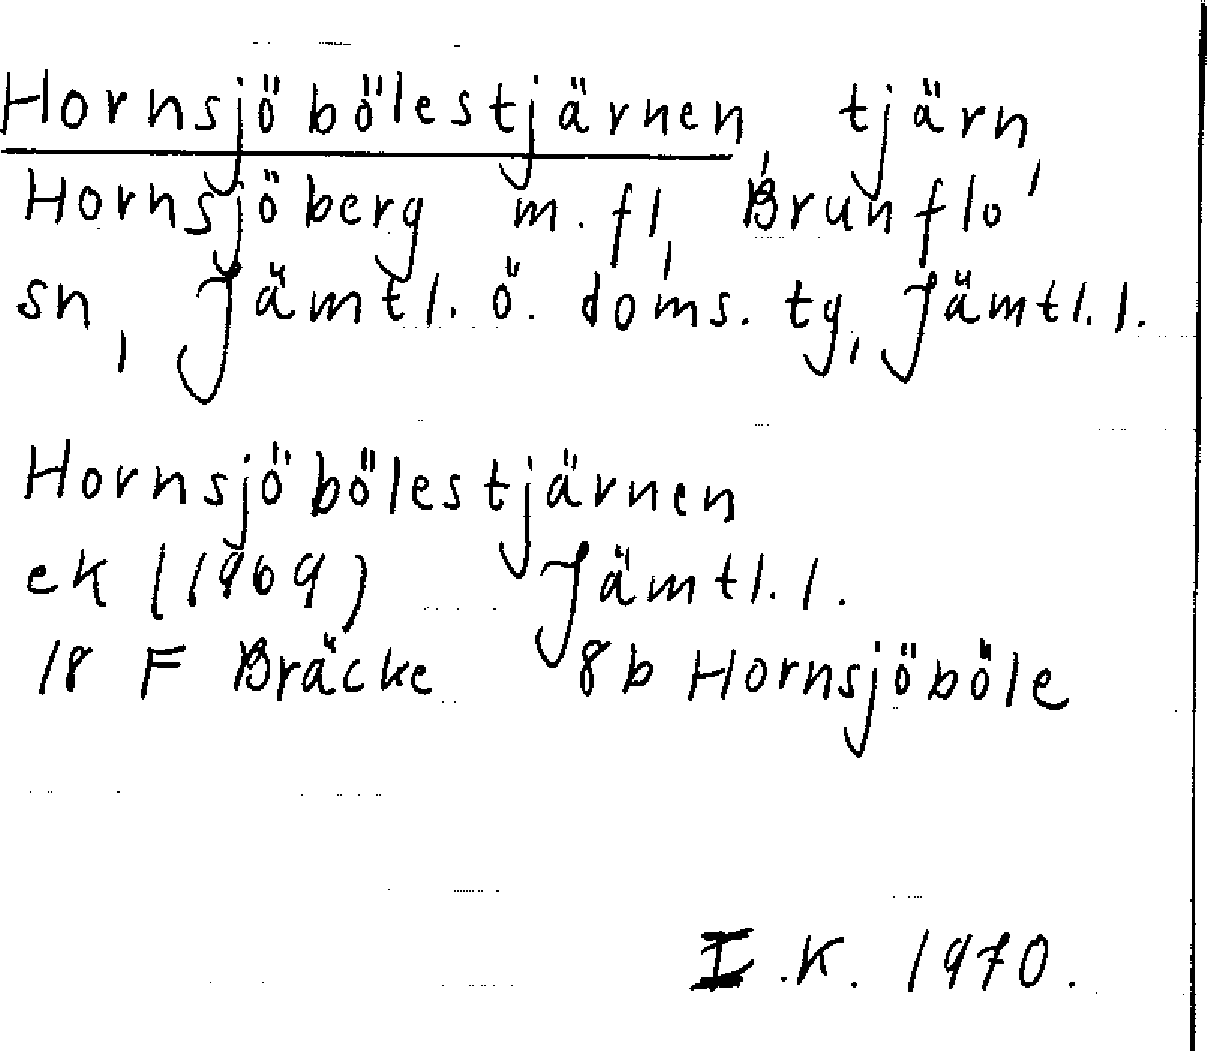 Hornsjöbölestjärnen, tjärn,
Hornsjöberg m.fl, Brunflo
sn, Jämtl. ö. doms. tg, Jämtl.l.
Hornsjöbölestjärnen
ek (1969) Jämtl.l.
18 F Bräcke 8b Hornsjöböle
I.K. 1970.